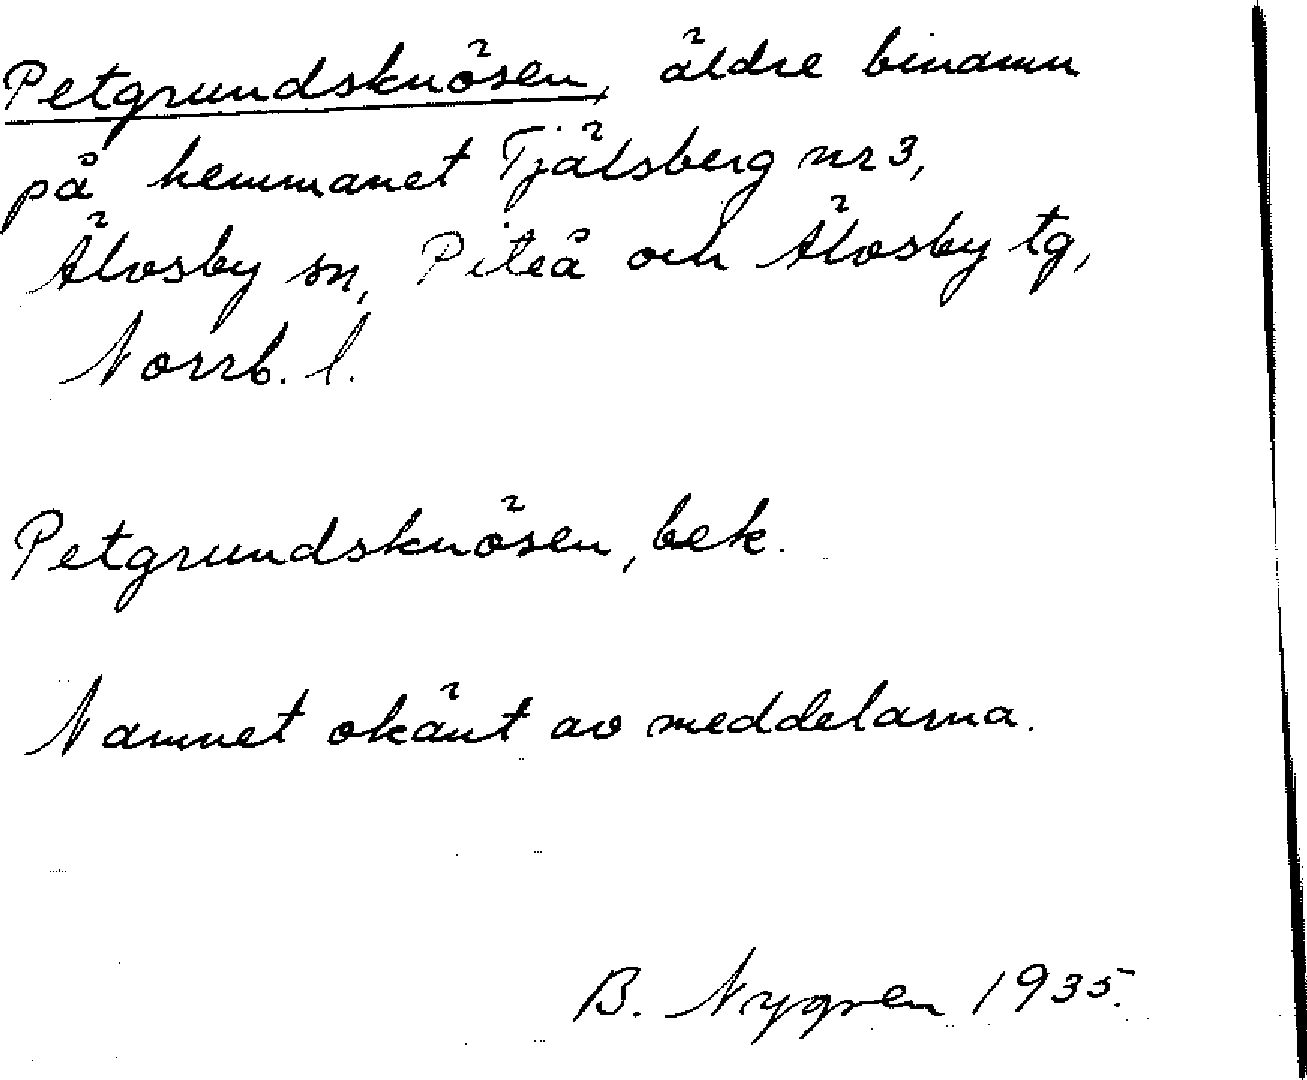 Petgrundsknösen, äldre binamn
på hemmanet Tjälsberg nr 3,
Älvsby sn, Piteå och Älvsby tg,
Norrb. l.
Petgrundsknösen, bek.
Namnet okänt av meddelarna.
B. Nygren 1935.